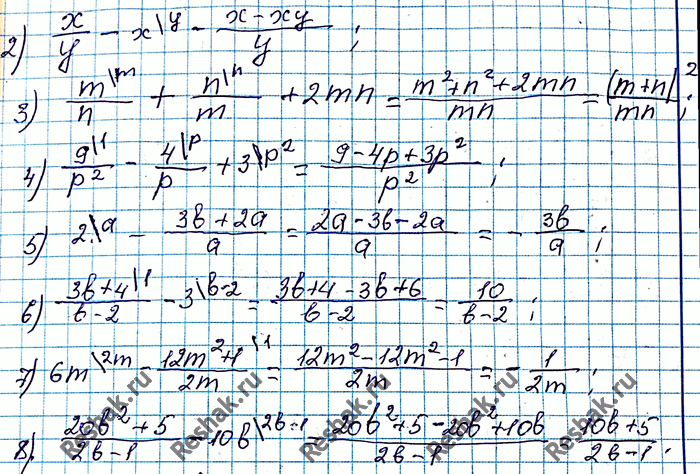 2) x/y - x\y - (x - xy)/y ;
3) m\m/n + n\n/m + 2mn = (m² + n² + 2mn)/mn = (m+n)²/mn ;
4) 9\1/p² - 4\p/p + 3\p² = (9 - 4p + 3p²)/p² ;
5) 2\a - (3b + 2a)/a = (2a - 3b - 2a)/a = - 3b/a ;
6) (3b + 4\1)/(b - 2) - 3\b-2 = (3b + 4 - 3b + 6)/(b - 2) = 10/(b - 2) ;
7) 6m\2m - (12m² + 1\1)/2m = (12m² - 12m² - 1)/2m = - 1/2m ;
8) (20b² + 5)/(2b - 1) - 10b\2b-1 = (20b² + 5 - 20b² + 10b)/(2b - 1) = (10b + 5)/(2b - 1) .
Reshak.ru Reshak.ru Reshak.ru Reshak.ru Reshak.ru